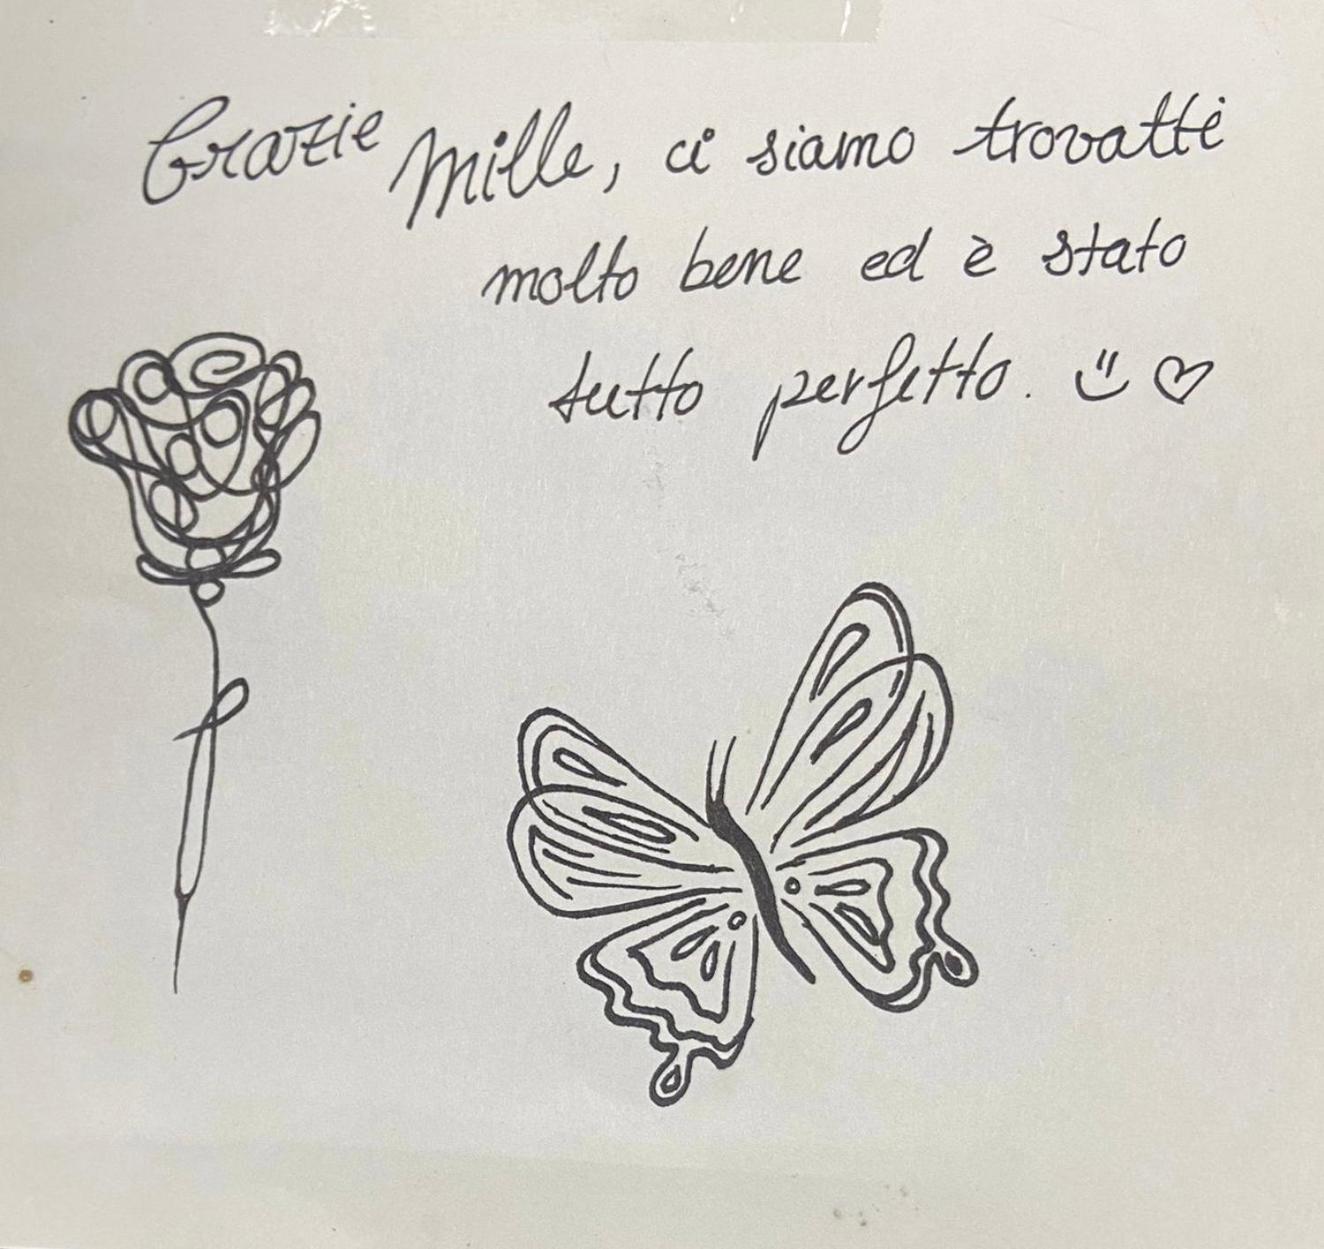 Grazie Mille, ci siamo trovatti
molto bene ed è stato
tutto perfetto.